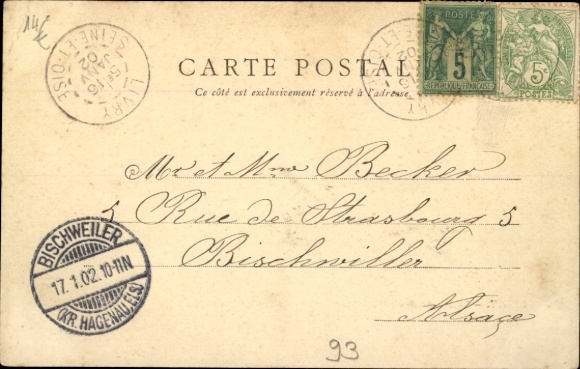 14f
LIVRY
SEINE-ET-OISE
5E 16
JANV
02
CARTE POSTAL
Ce côté est exclusivement réservé à l'adresse
POSTE
5
REPUBLIQUE FRANÇAISE
5c
POSTES
Mr et Mme Becker
5 Rue de Strasbourg 5
Bischwiller
Alsace
BISCHWEILER
17.1.02.10-11N
(KR. HAGENAU, ELS)
93